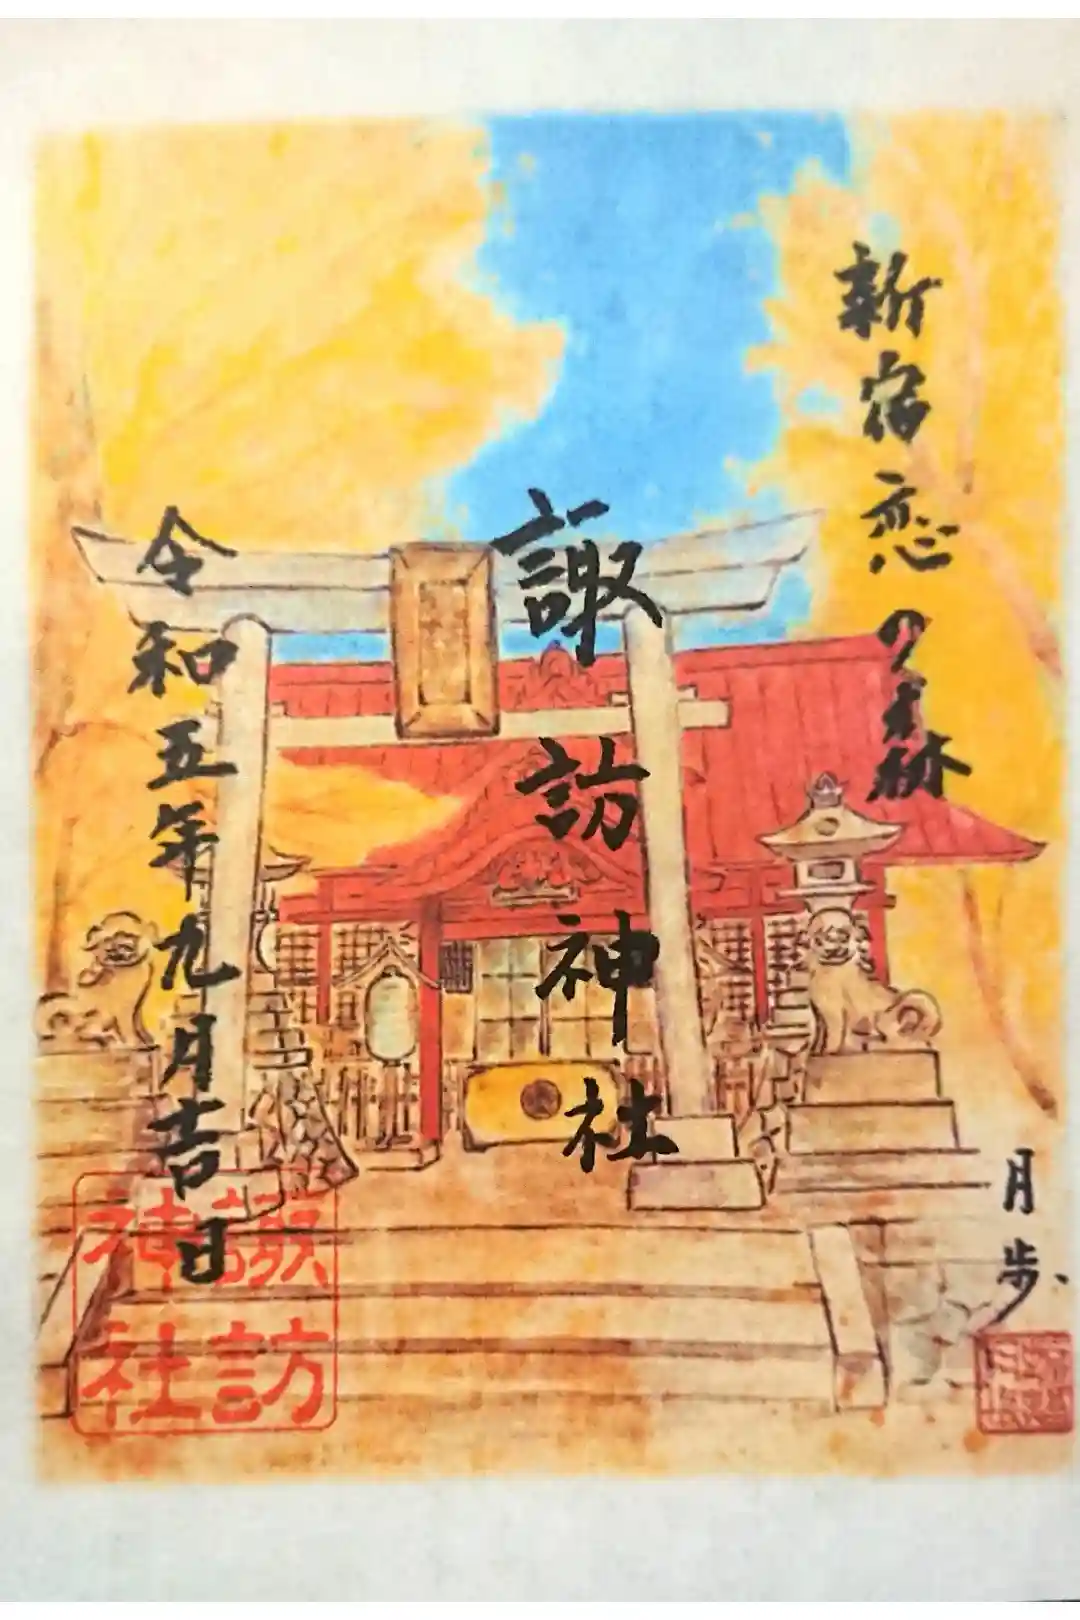 新宿恋の森
諏訪神社
令和五年九月吉日
諏訪
神社
月歩